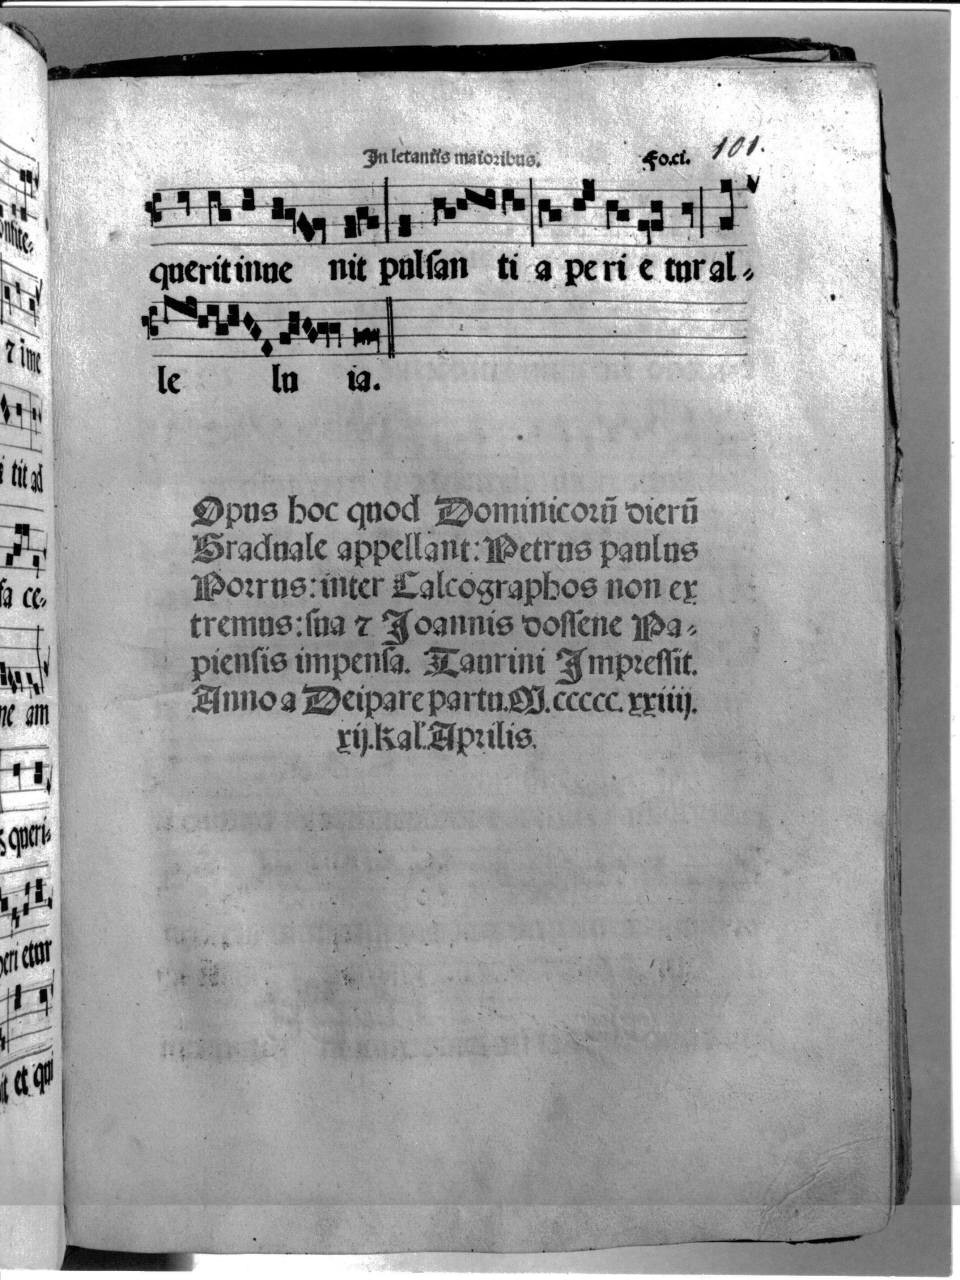 In letaniis maioribus. Fo.ci. 101.
querit inue nit pulsan ti a pe ri e tur al-
le lu ia.
Opus hoc quod Dominicorū dierū
Graduale appellant: Petrus paulus
Porrus: inter Calcographos non ex
tremus: sua ⁊ Joannis dossene Pa-
piensis impensa. Taurini Impressit.
Anno a Deipare partu. M. ccccc. xxiiij.
xij. Kal'. Aprilis.
⁊ ime
tit ad
sa ce-
ne am
s queri-
peri etur
it et qui